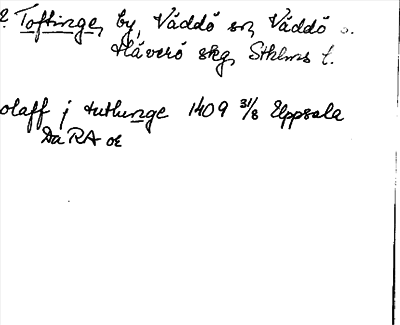 Toftinge, by, Väddö sn, Väddö o.
Häverö skg, Sthlms l.
olaff j tutlunge 1409 31/8 Uppsala
Da RA oe